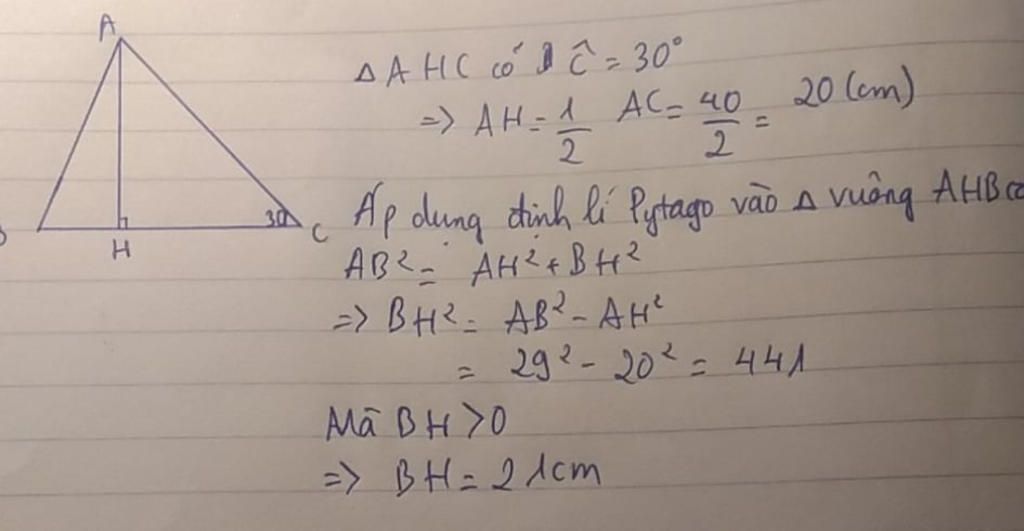 A
B
H
30
C
Δ AHC có Ĉ = 30°
=> AH = 1/2 AC = 40/2 = 20 (cm)
Áp dụng định lí Pytago vào Δ vuông AHB có
AB² = AH² + BH²
=> BH² = AB² - AH²
= 29² - 20² = 441
Mà BH > 0
=> BH = 21cm